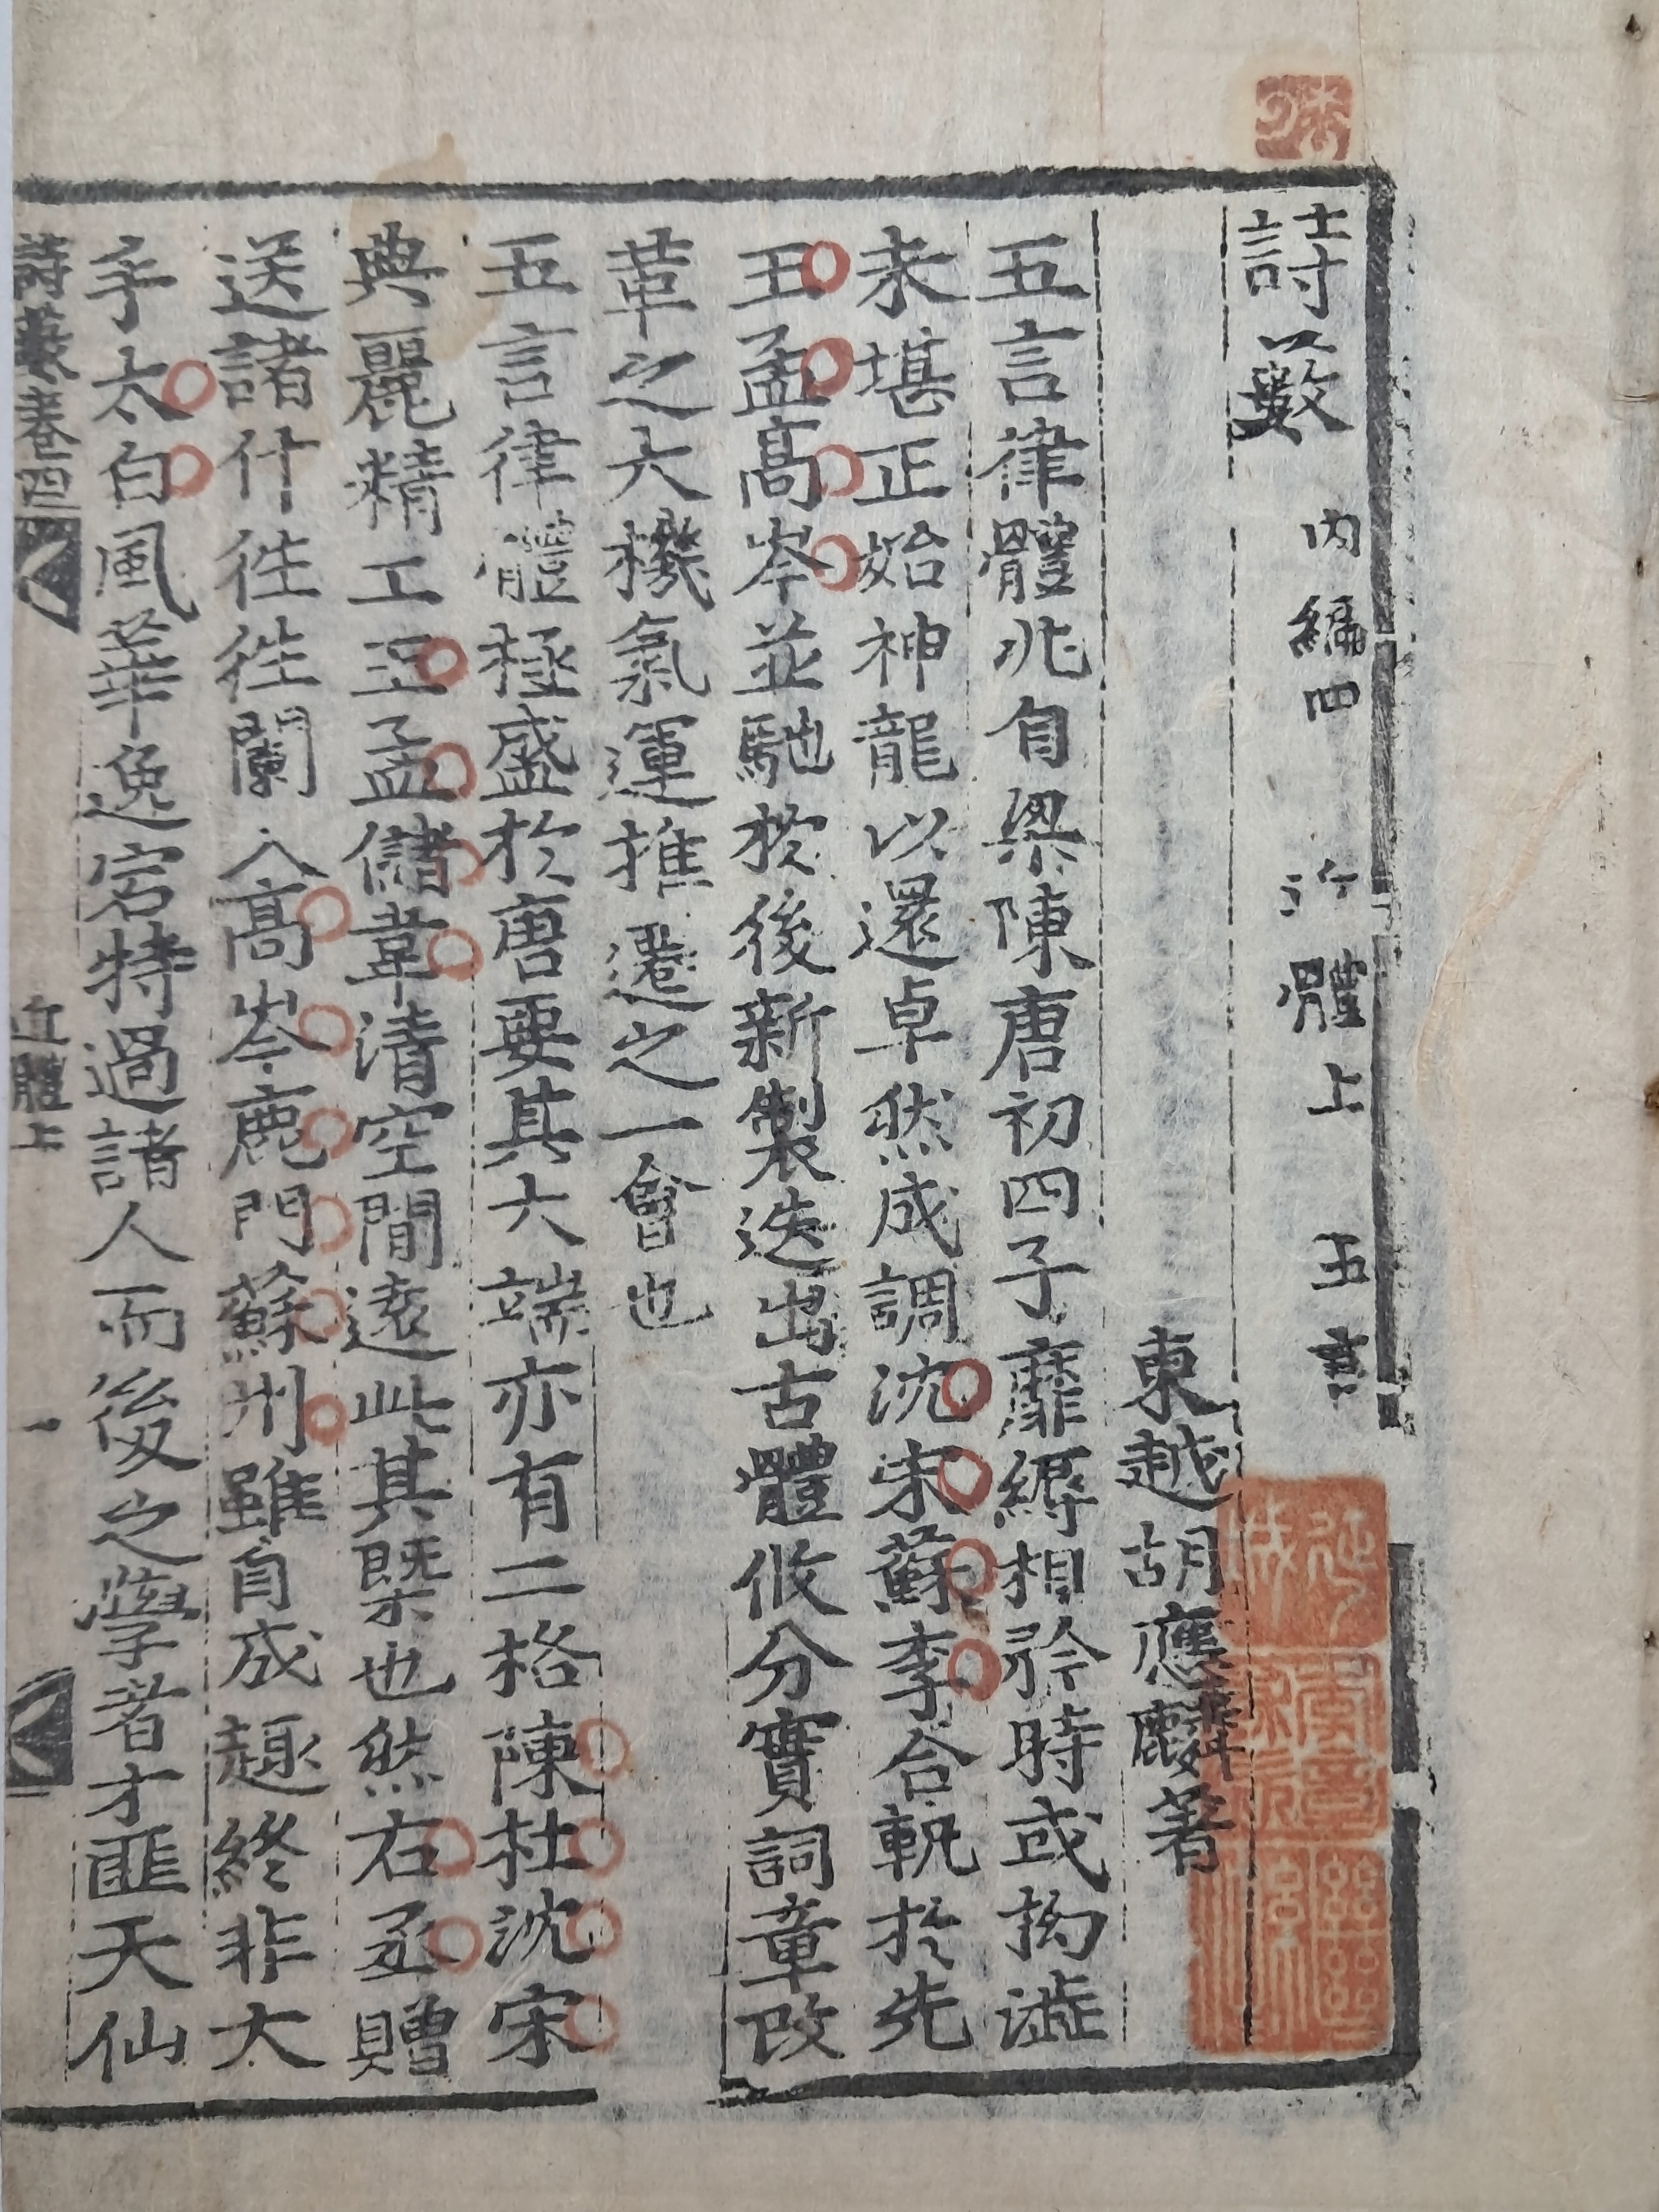 詩藪 內編四 近體上 五言
東越胡應麟著
五言律體兆自梁陳唐初四子靡縟相矜時或拗澁
未堪正始神龍以還卓然成調沈宋蘇李合軌於先
王孟高岑並馳於後新製迭出古體攸分實詞章改
革之大機氣運推遷之一會也
五言律體極盛於唐要其大端亦有二格陳杜沈宋
典麗精工王孟儲韋清空閒遠此其槩也然右丞贈
送諸什徃徃闌入高岑鹿門蘇州雖自成趣終非大
手太白風華逸宕特過諸人而後之學者才匪天仙
詩藪卷四 近體上 一